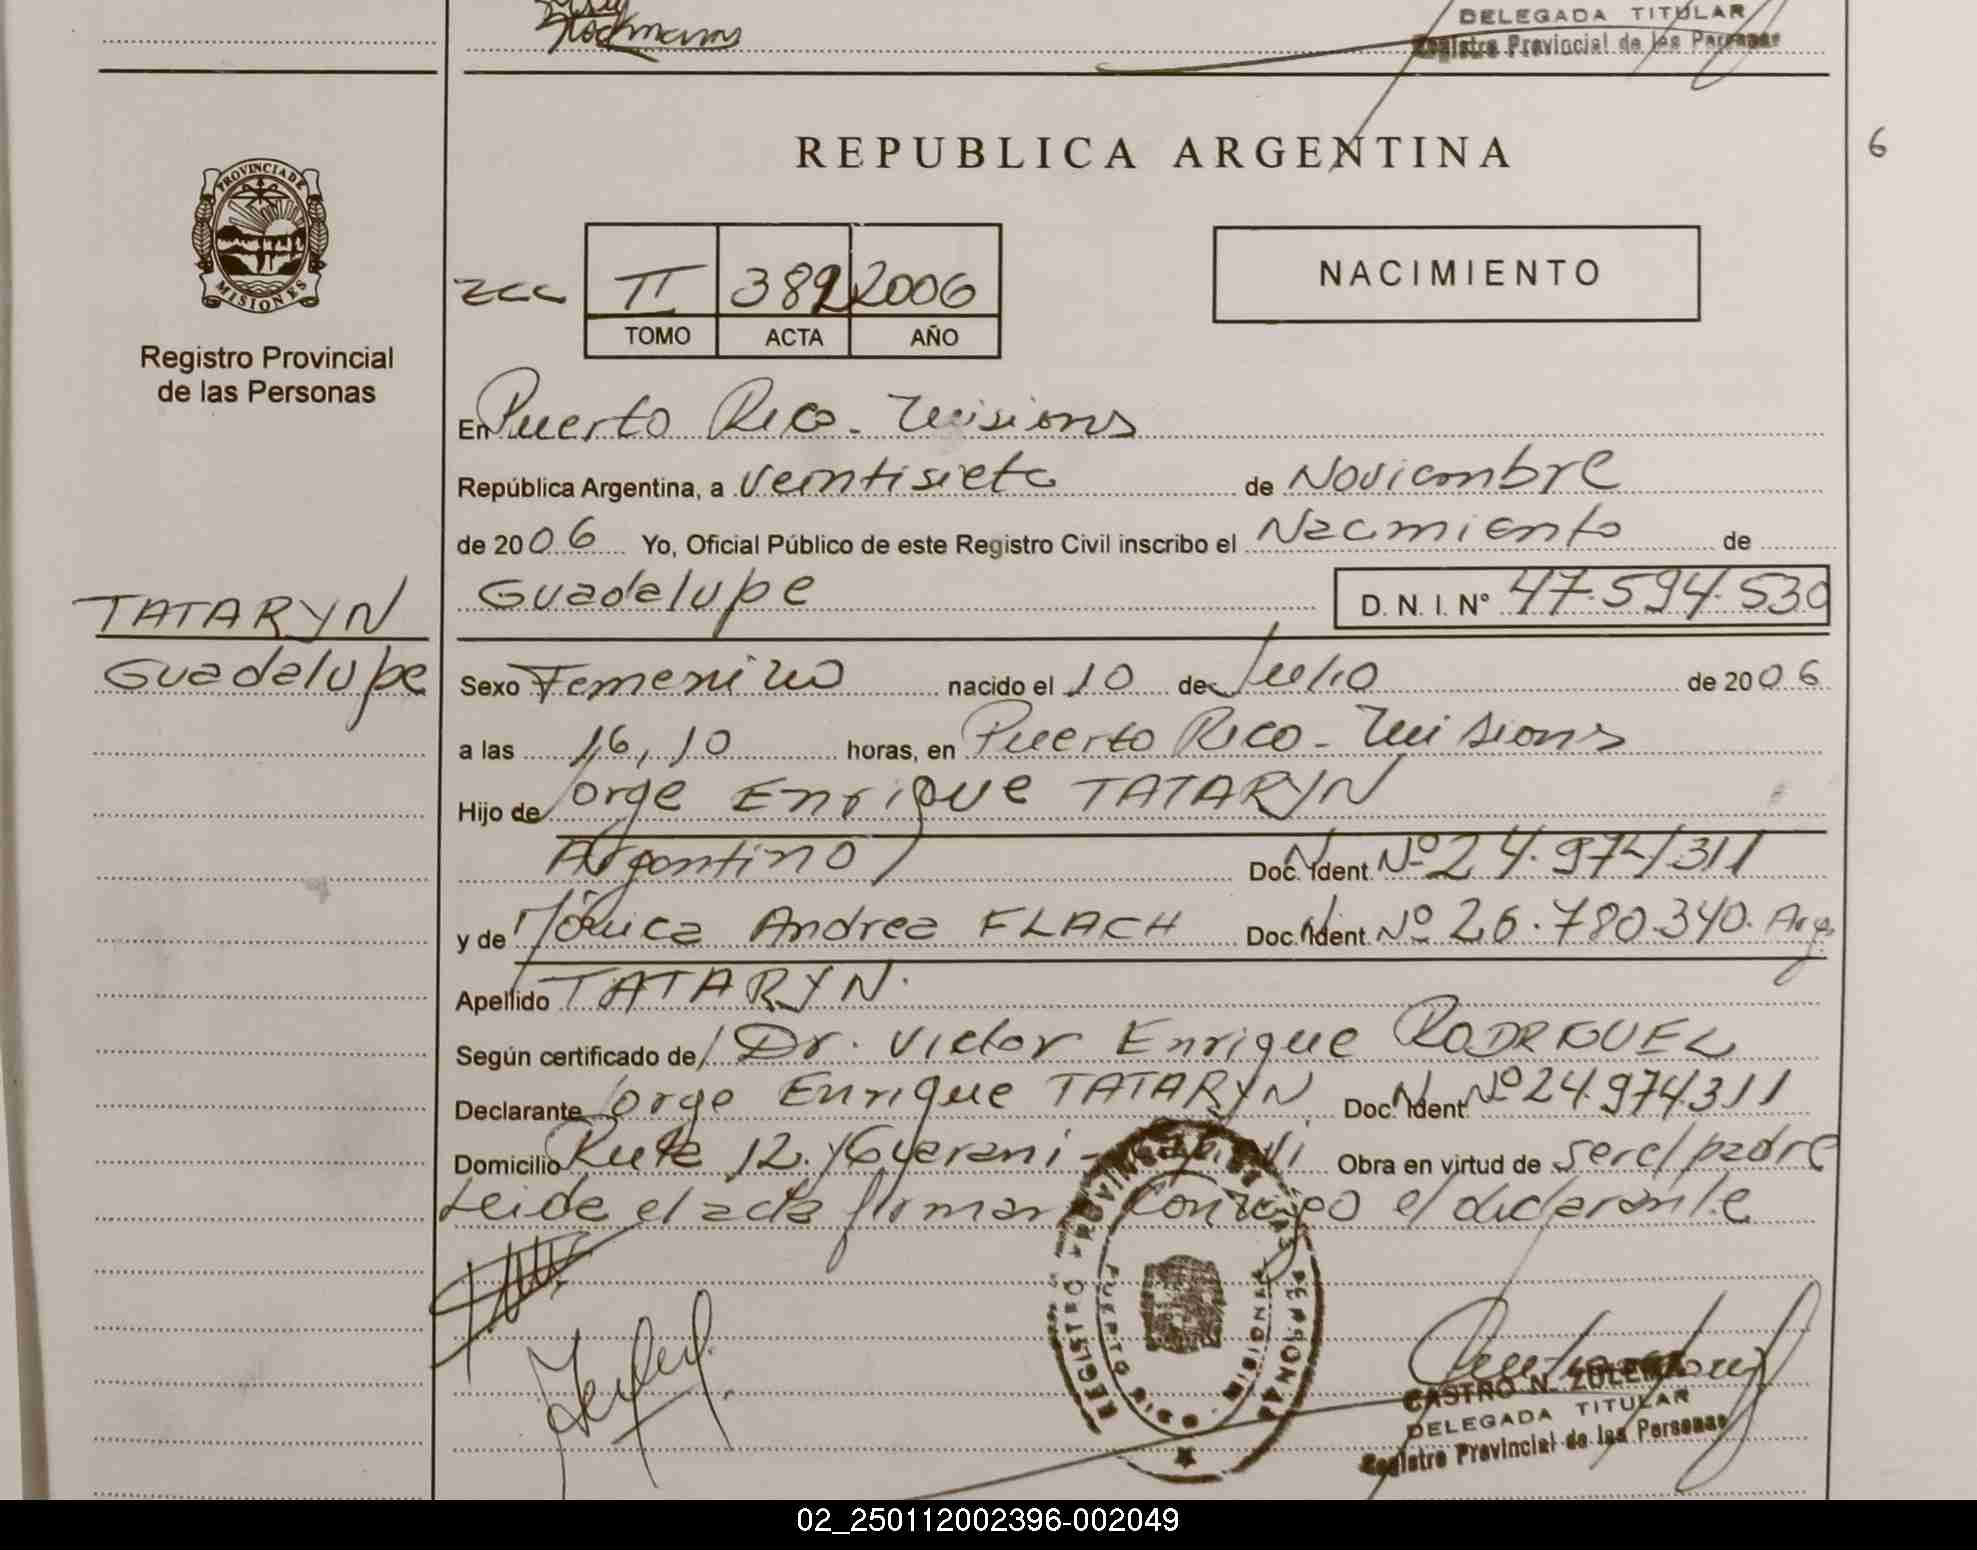 DELEGADA TITULAR
Registro Provincial de las Personas
REPUBLICA ARGENTINA
6
PROVINCIA DE
MISIONES
Registro Provincial
de las Personas
II 382 2006
TOMO ACTA AÑO
NACIMIENTO
En Puerto Rico - Misiones
República Argentina, a veintisiete de Noviembre
de 2006 Yo, Oficial Público de este Registro Civil inscribo el Nacimiento de
Guadalupe D. N. I. N° 47.594.530
TATARYN
Guadalupe
Sexo Femenino nacido el 10 de Julio de 2006
a las 16,10 horas, en Puerto Rico - Misiones
Hijo de Jorge Enrique TATARYN
Argentino Doc. Ident. Nº 24.974.311
y de Mónica Andrea FLACH Doc. Ident. Nº 26.780.340. Arg.
Apellido TATARYN.
Según certificado de Dr. Victor Enrique RODRIGUEZ
Declarante Jorge Enrique TATARYN Doc. Ident. Nº 24.974.311
Domicilio Ruta 12. y Guarani - Obra en virtud de ser el padre
Leida el acta firman conmigo el declarante
REGISTRO PROVINCIAL DE LAS PERSONAS
PUERTO RICO MISIONES
CASTRO N. ZULEMA
DELEGADA TITULAR
Registro Provincial de las Personas
02_250112002396-002049